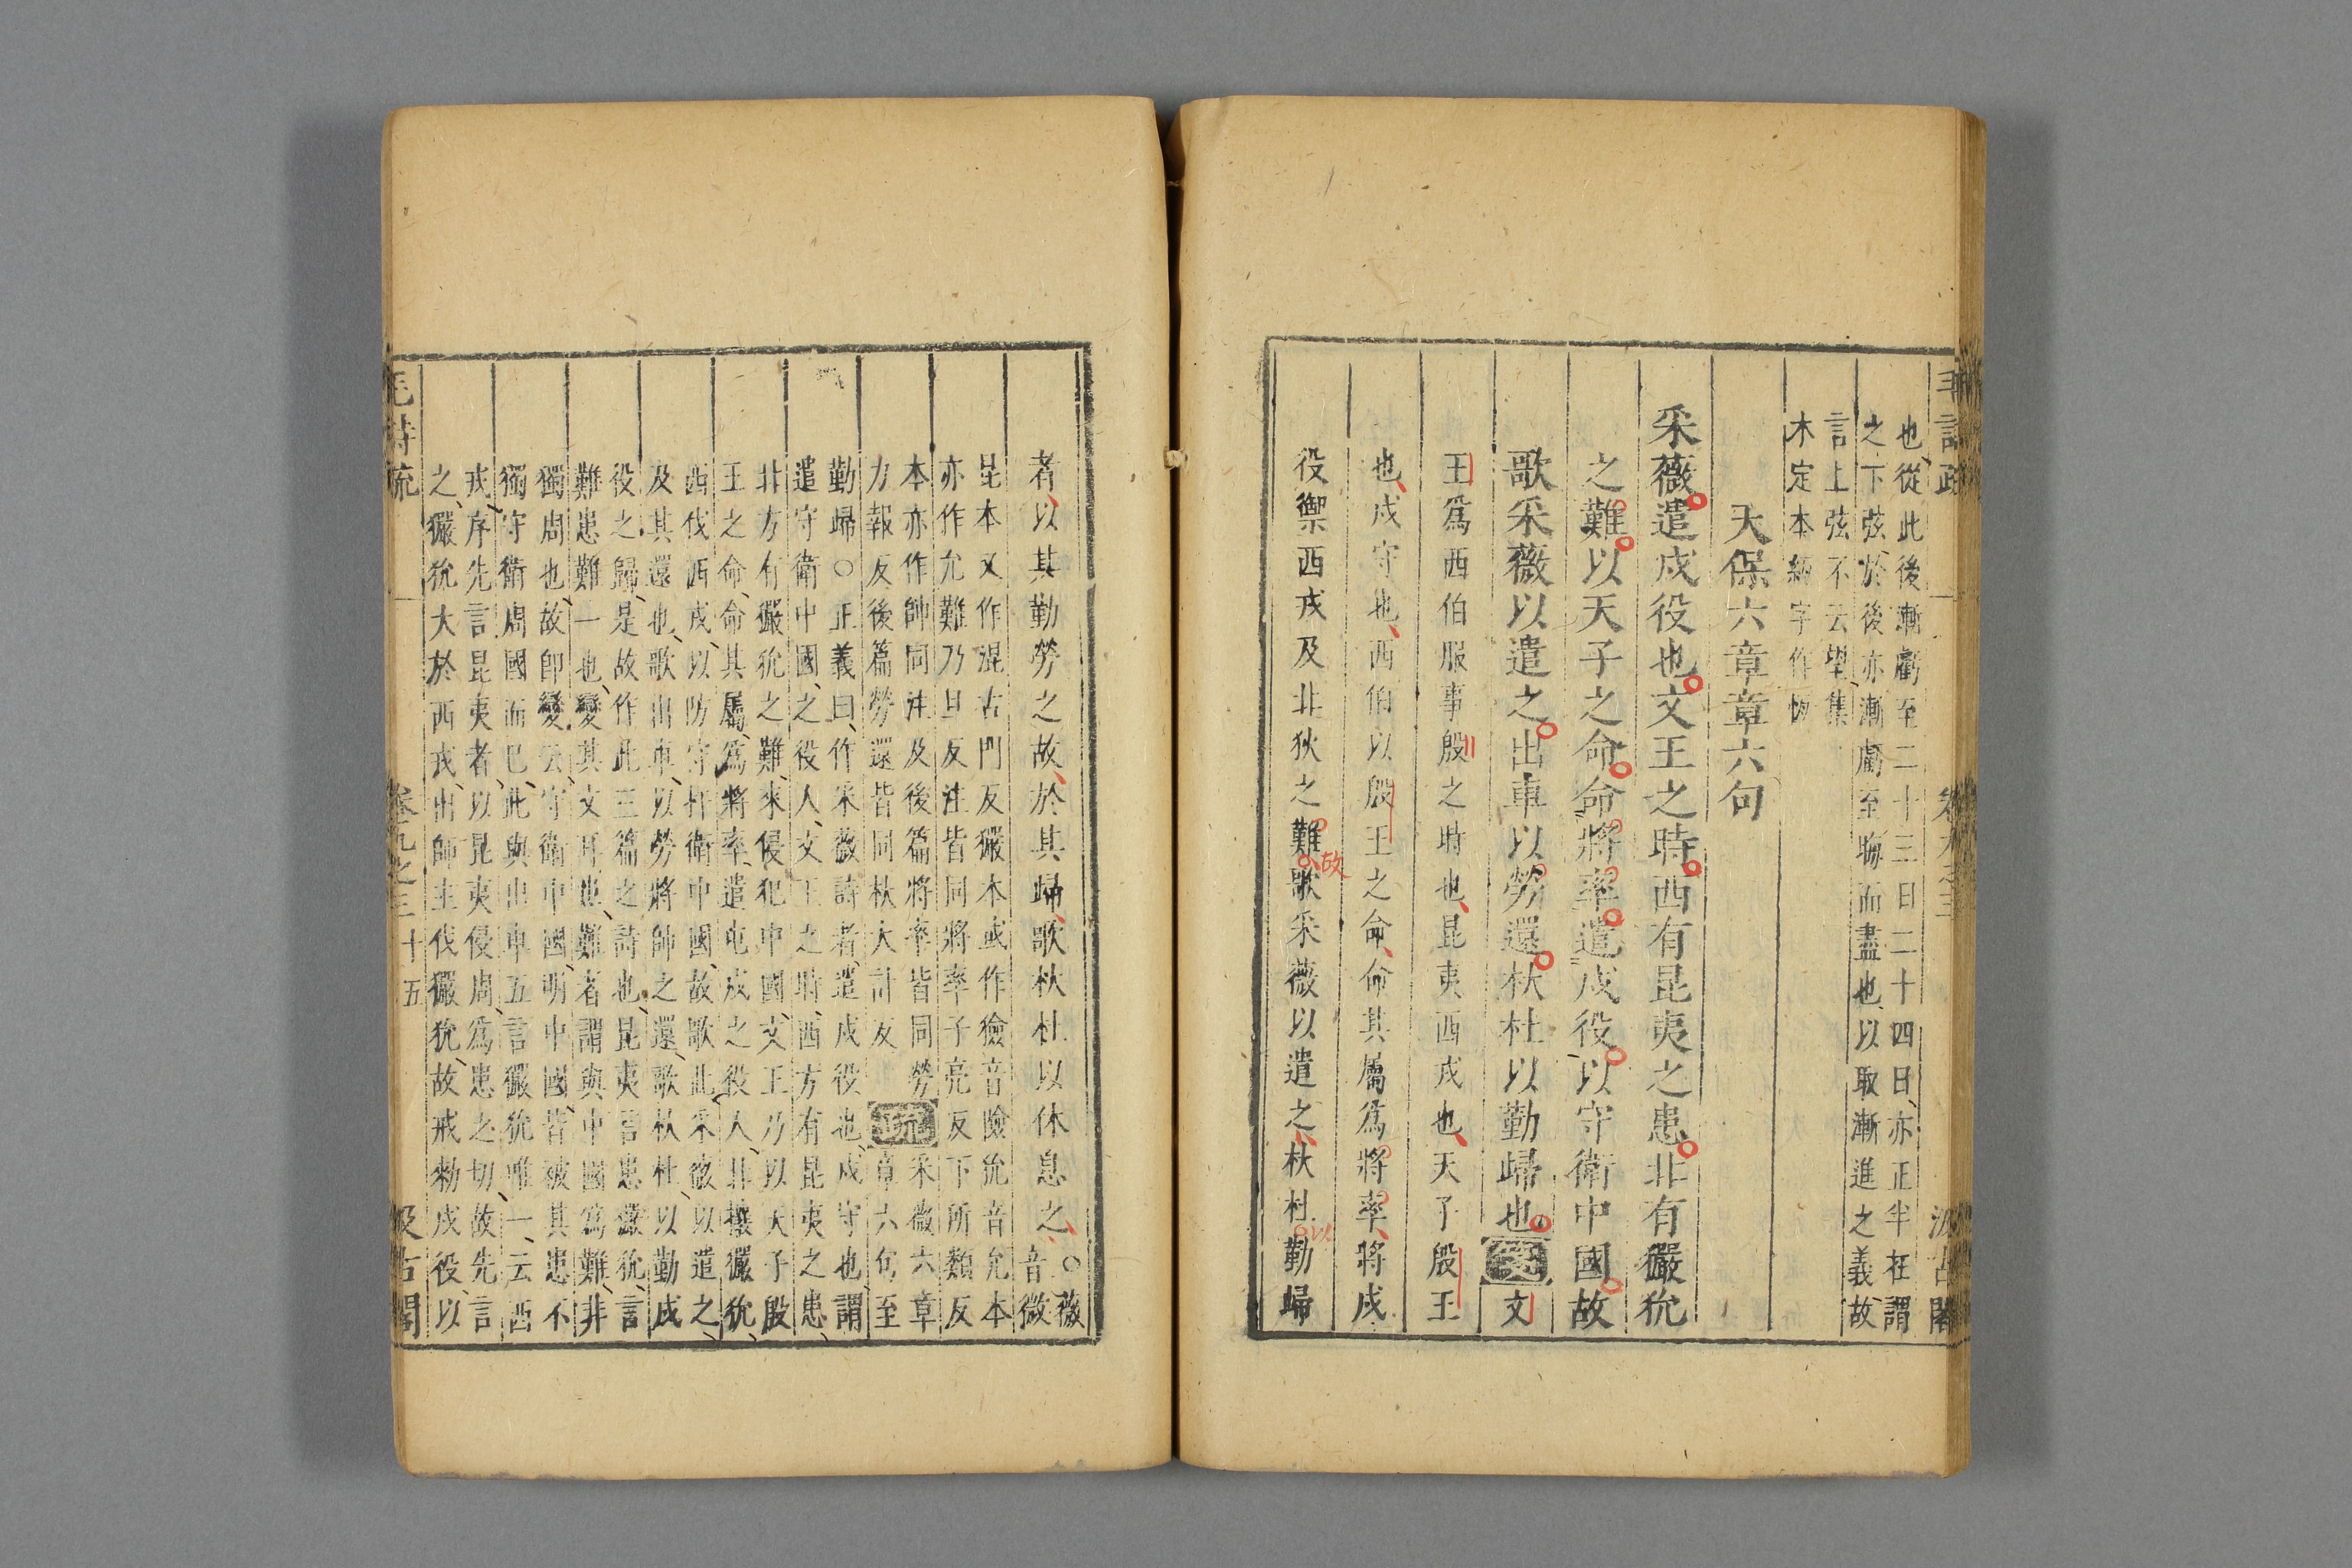 毛詩疏 卷九之三 汲古閣
也從此後漸虧至二十三日二十四日亦正半在謂
之下弦於後亦漸虧至晦而盡也以取漸進之義故
言上弦不云望集
木定本絚字作恆
天保六章章六句
采薇遣戍役也文王之時西有昆夷之患北有玁狁
之難以天子之命命將率遣戍役以守衛中國故
歌采薇以遣之出車以勞還杕杜以勤歸也箋文
王爲西伯服事殷之時也昆夷西戎也天子殷王
也戍守也西伯以殷王之命命其屬爲將率將戍
役禦西戎及北狄之難故歌采薇以遣之杕杜以勤歸
者以其勤勞之故於其歸歌杕杜以休息之○薇
音微
昆本又作混古門反玁本或作獫音險狁音允本
亦作允難乃旦反注皆同將率子亮反下所類反
本亦作帥同注及後篇將率皆同勞
力報反後篇勞還皆同杕大計反疏采薇六章
章六句至
勤歸○正義曰作采薇詩者遣戍役也戍守也謂
遣守衛中國之役人文王之時西方有昆夷之患
北方有玁狁之難來侵犯中國文王乃以天子殷
王之命命其屬爲將率遣屯戍之役人北攘玁狁
西伐西戎以防守扞衛中國故歌此采薇以遣之
及其還也歌出車以勞將帥之還歌杕杜以勤戍
役之歸是故作此三篇之詩也昆夷言患玁狁言
難患難一也變其文耳患難者謂與中國爲難非
獨周也故卽變云守衛中國明中國皆被其患不
獨守衛周國而已此與出車五言玁狁唯一云西
戎序先言昆夷者以昆夷侵周爲患之切故先言
之玁狁大於西戎出師主伐玁狁故戒勑戍役以
毛詩疏 卷九之三 十五 汲古閣